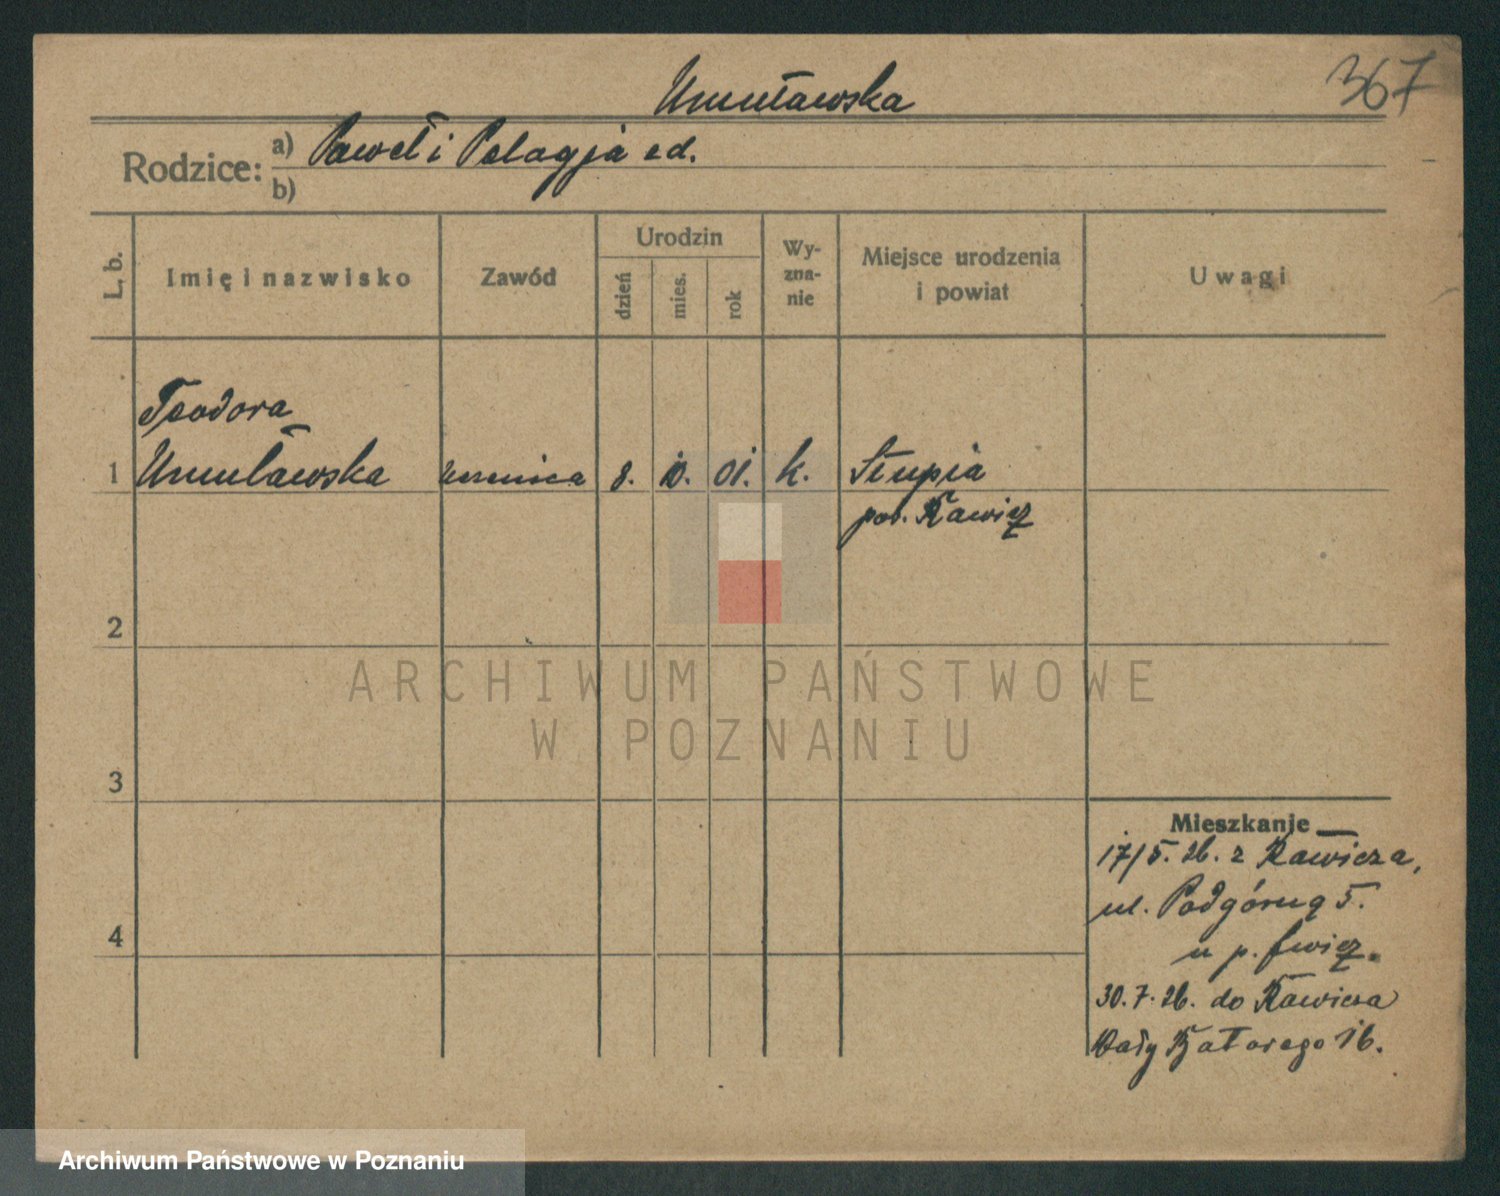 367
Umuławska
Rodzice: a) Paweł i Pelagja ed.
b)
L. b.
Imię i nazwisko
Zawód
Urodzin
dzień
mies.
rok
Wy-
zna-
nie
Miejsce urodzenia
i powiat
Uwagi
Teodora
1 Umuławska uczenica 8. 10. 01. k. Słupia
pow. Rawicz
2
3
4
Mieszkanie
17/5. 26. z Rawicza,
ul. Podgórną 5.
u p.
30. 7. 26. do Rawicza
Wały Batorego 16.
ARCHIWUM PAŃSTWOWE
W POZNANIU
Archiwum Państwowe w Poznaniu